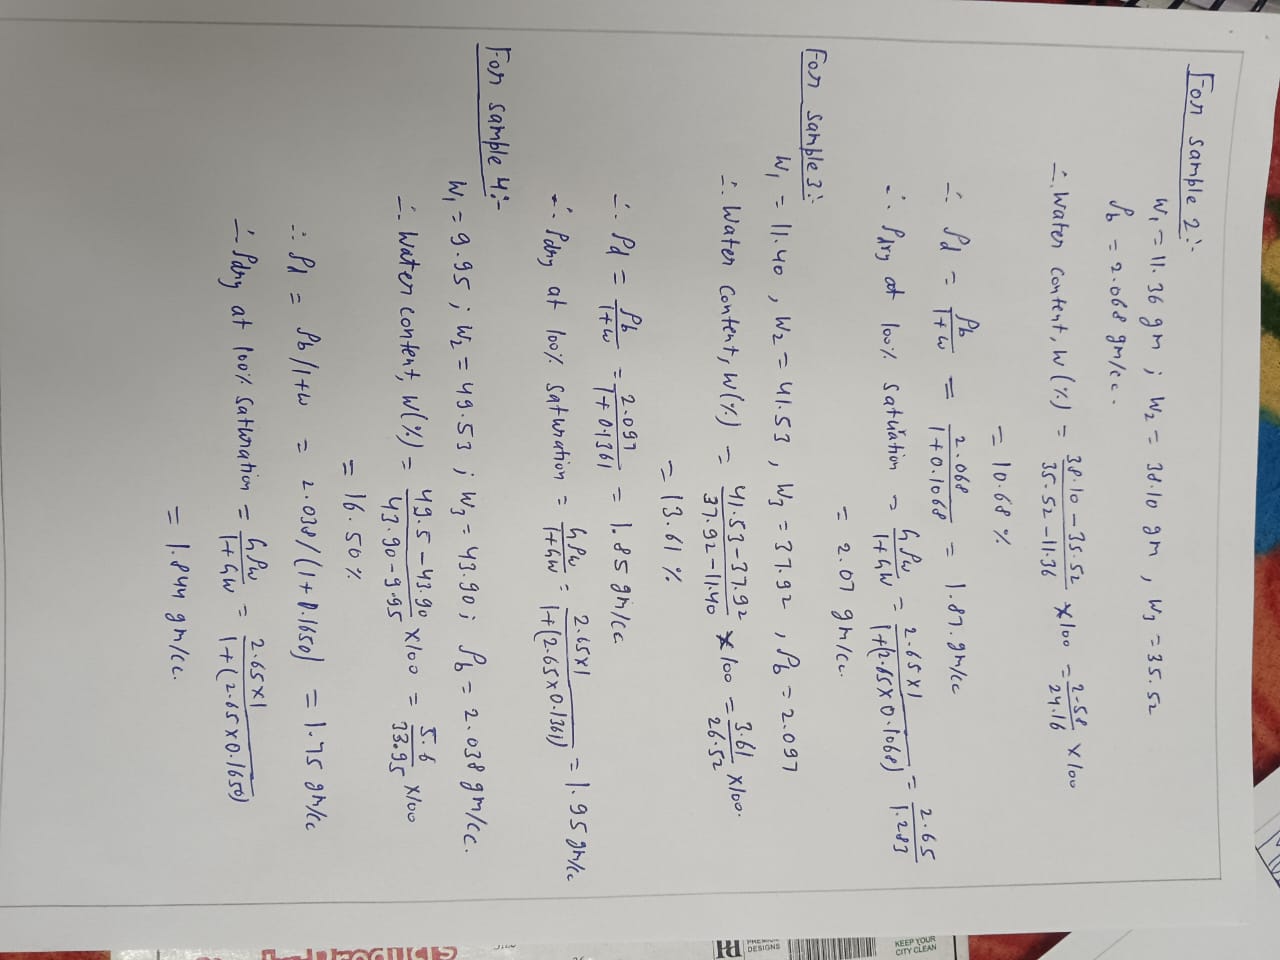 For sample 2:-
W1 = 11.36 gm ; W2 = 38.10 gm , W3 = 35.52
ρb = 2.068 gm/cc.
∴ Water content, W(%) = 38.10-35.52/35.52-11.36 × 100 = 2.58/24.16 × 100
= 10.68 %
∴ ρd = ρb/1+w = 2.068/1+0.1068 = 1.87 gm/cc
∴ ρdry at 100% satuation = GρW/1+GW = 2.65×1/1+(2.65×0.1068) = 2.65/1.283
= 2.07 gm/cc.
For sample 3:-
W1 = 11.40 , W2 = 41.53 , W3 = 37.92 , ρb = 2.097
∴ Water Content, W(%) = 41.53-37.92/37.92-11.40 × 100 = 3.61/26.52 ×100.
= 13.61 %
∴ ρd = ρb/1+w = 2.097/1+0.1361 = 1.85 gm/cc
∴ ρdry at 100% saturation = GρW/1+GW = 2.65×1/1+(2.65×0.1361) = 1.95 gm/cc
For sample 4:-
W1 = 9.95 ; W2 = 49.53 ; W3 = 43.90 ; ρb = 2.038 gm/cc.
∴ Water content, W(%) = 49.5-43.90/43.90-9.95 ×100 = 5.6/33.95 ×100
= 16.50 %
∴ ρd = ρb/1+w = 2.038/(1+0.1650) = 1.75 gm/cc
∴ ρdry at 100% saturation = GρW/1+GW = 2.65×1/1+(2.65×0.1650)
= 1.844 gm/cc.
KEEP YOUR
CITY CLEAN
DESIGNS